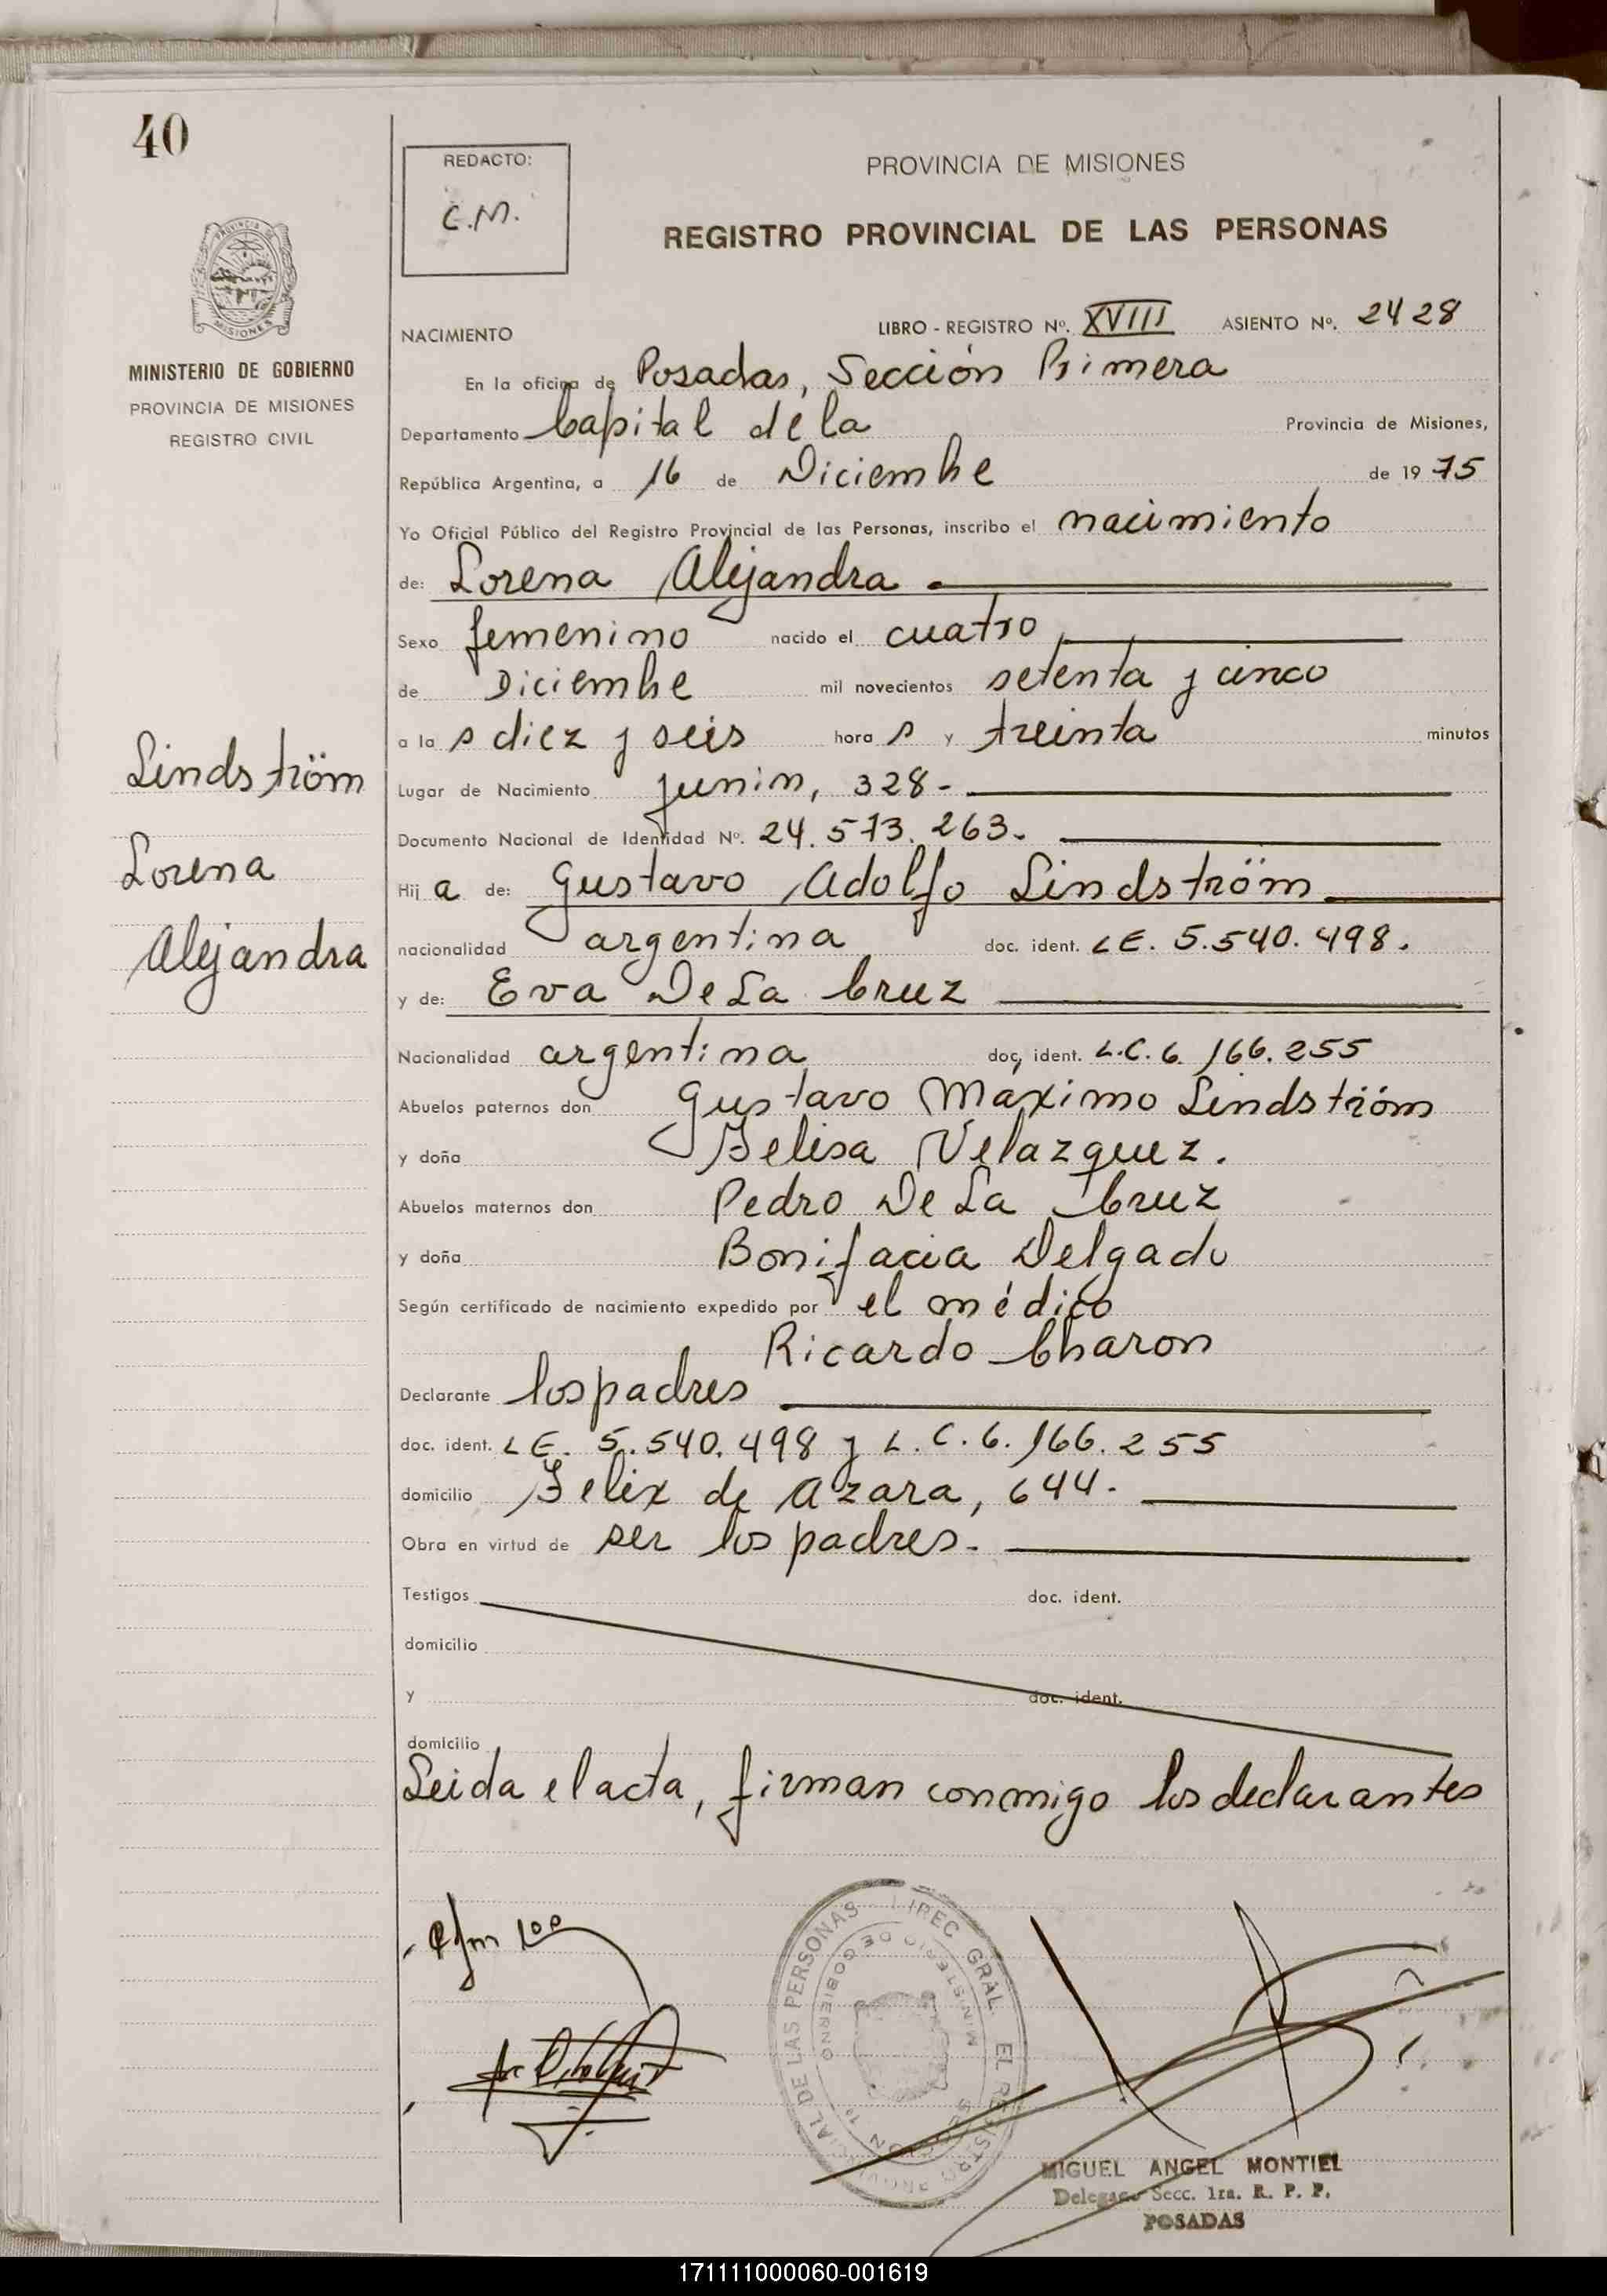 40
REDACTO:
C.M.
PROVINCIA DE MISIONES
REGISTRO PROVINCIAL DE LAS PERSONAS
MISIONES
MINISTERIO DE GOBIERNO
PROVINCIA DE MISIONES
REGISTRO CIVIL
NACIMIENTO LIBRO - REGISTRO Nº. XVIII ASIENTO Nº. 2428
En la oficina de Posadas, Sección Primera
Departamento Capital de la Provincia de Misiones,
República Argentina, a 16 de Diciembre de 1975
Yo Oficial Público del Registro Provincial de las Personas, inscribo el nacimiento
de: Lorena Alejandra
Sexo femenino nacido el cuatro
de Diciembre mil novecientos setenta y cinco
a la s diez y seis hora s y treinta minutos
Lindström
Lorena
Alejandra
Lugar de Nacimiento Junin, 328-
Documento Nacional de Identidad Nº. 24.573.263.
Hij a de: Gustavo Adolfo Lindström
nacionalidad argentina doc. ident. LE. 5.540.498.
y de: Eva De La Cruz
Nacionalidad argentina doc, ident. L.C. 6.166.255
Abuelos paternos don Gustavo Maximo Lindström
y doña Felisa Velazquez.
Abuelos maternos don Pedro De La Cruz
y doña Bonifacia Delgado
Según certificado de nacimiento expedido por el médico
Ricardo Charon
Declarante los padres
doc. ident. LE. 5.540.498 y L.C. 6.166.255
domicilio Felix de Azara, 644.
Obra en virtud de ser los padres.
Testigos doc. ident.
domicilio
y doc. ident.
domicilio
Leida el acta, firman conmigo los declarantes
DIREC GRAL EL REGISTRO PROVINCIAL DE LAS PERSONAS
MINISTERIO DE GOBIERNO
SECCION 1ª
MIGUEL ANGEL MONTIEL
Delegado Secc. 1ra. R. P. P.
POSADAS
171111000060-001619